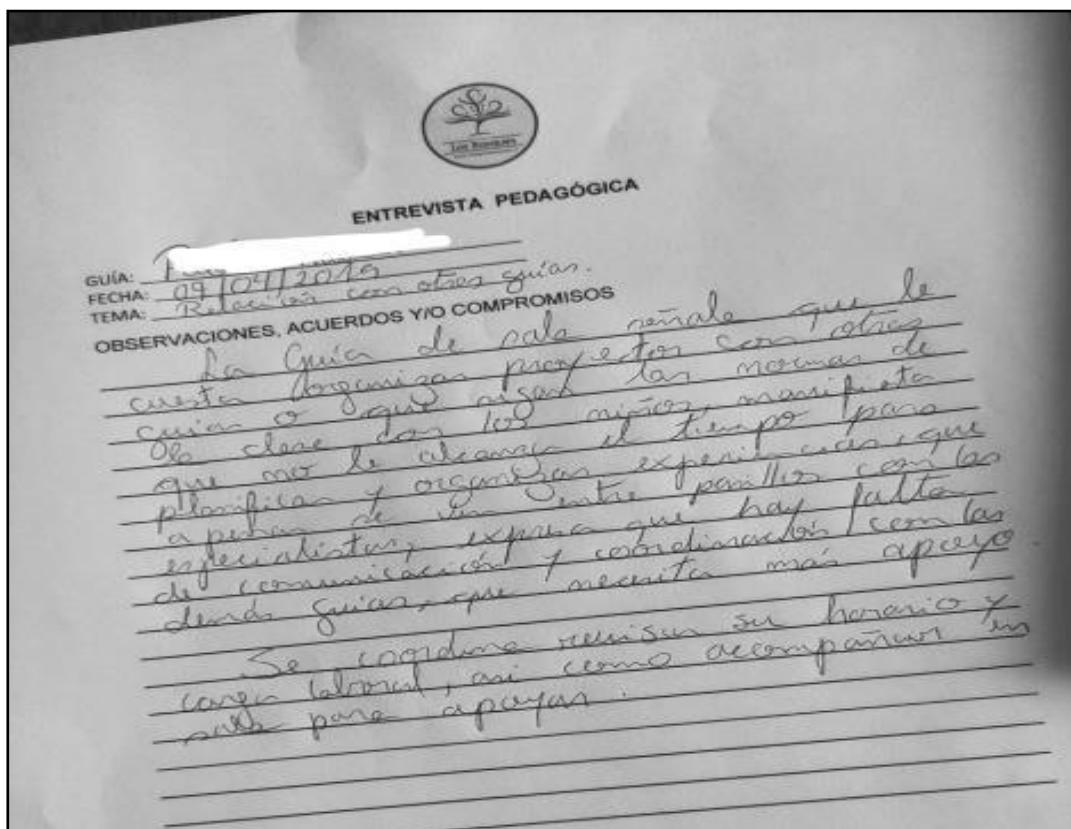 Los Bosques
ENTREVISTA PEDAGÓGICA
GUÍA:
FECHA: 09/04/2019
TEMA: Relación con otras guías.
OBSERVACIONES, ACUERDOS Y/O COMPROMISOS
La Guía de sala señala que le
cuesta organizar proyectos con otras
guías o que sigan las normas de
la clase con los niños, manifiesta
que no le alcanza el tiempo para
planificar y organizar experiencias, que
apenas se ven entre pasillos con las
especialistas, expresa que hay falta
de comunicación y coordinación con las
demás guías, que necesita más apoyo.
Se coordina revisar su horario y
carga laboral, así como acompañar en
sala para apoyar.